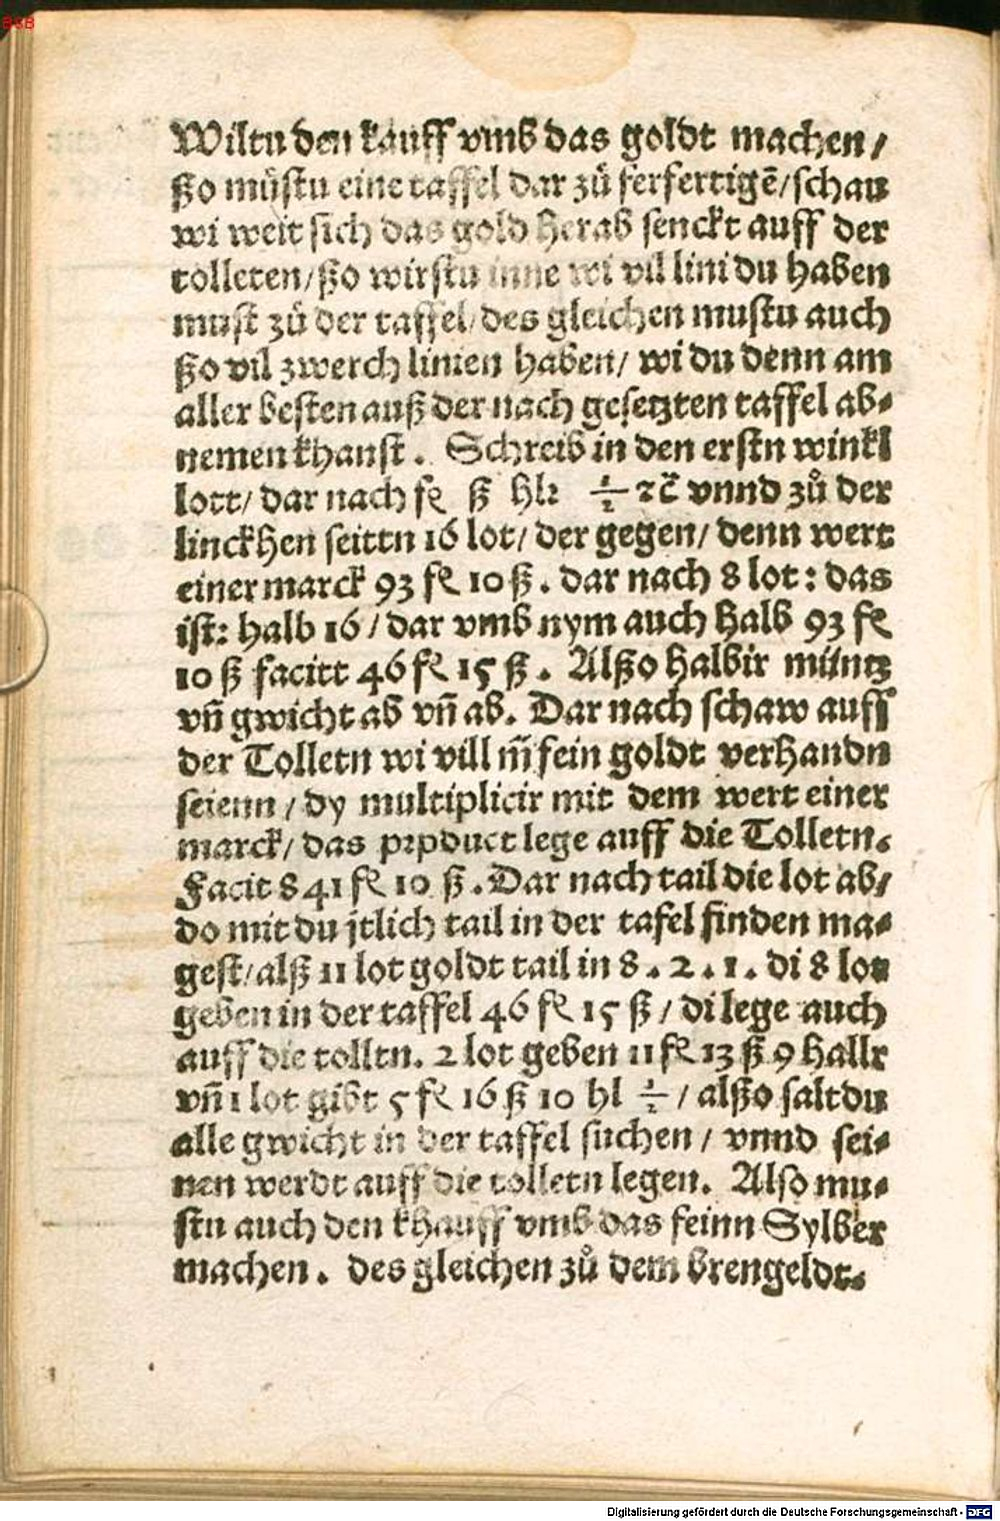 BSB
Wiltu den kauff vmb das goldt machen/
ßo müstu eine taffel dar zů ferfertigē/schau
wi weit sich das gold herab senckt auff der
tolleten/ßo wirstu inne wi vil lini du haben
must zů der taffel/des gleichen mustu auch
ßo vil zwerch linien haben/ wi du denn am
aller besten auß der nach gesetzten taffel ab⸗
nemen khanst. Schreib in den erstn winkl
lott/ dar nach fl ß hlr ½ ꝛc̄ vnnd zů der
linckhen seittn 16 lot/ der gegen/ denn wert
einer marck 93 fl 10 ß. dar nach 8 lot: das
ist: halb 16/dar vmb nym auch halb 93 fl
10 ß facitt 46 fl 15 ß. Alßo halbir müntz
vn̄ gwicht ab vn̄ ab. Dar nach schaw auff
der Tolletn wi vill m̄ fein goldt verhandn
seienn/dy multiplicir mit dem wert einer
marck/ das prpduct lege auff die Tolletn.
Facit 841 fl 10 ß. Dar nach tail die lot ab/
do mit du jtlich tail in der tafel finden ma⸗
gest/alß 11 lot goldt tail in 8. 2. 1. di 8 lot
geben in der taffel 46 fl 15 ß/ di lege auch
auff die tolltn. 2 lot geben 11 fl 13 ß 9 hallr
vn̄ 1 lot gibt 5 fl 16 ß 10 hl ½/ alßo saltdu
alle gwicht in der taffel suchen/ vnnd sei⸗
nen werdt auff die tolletn legen. Also mu⸗
stu auch den khauff vmb das feinn Sylber
machen. des gleichen zů dem brengeldt.
Digitalisierung gefördert durch die Deutsche Forschungsgemeinschaft - DFG